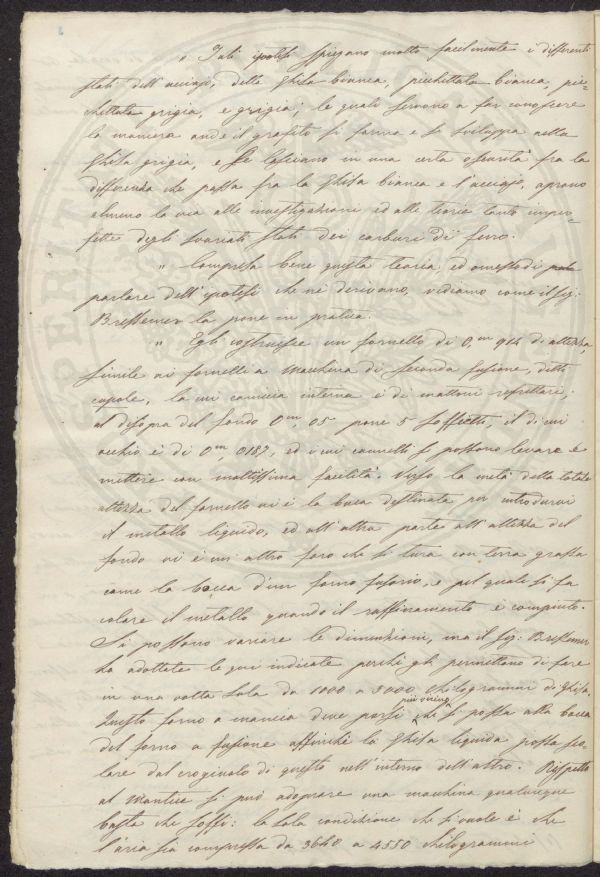 " Tali ipotesi spiegano molto facilmente i differenti
stati dell'acciajo, della Ghisa bianca, picchiettata bianca, pic-
chiettata grigia, e grigia; le quali servono a far conoscere
la maniera onde il grafito si forma e si sviluppa nella
Ghisa grigia, e se lasciano in una certa oscurità fra la
differenza che passa fra la Ghisa bianca e l'acciajo, aprono
almeno la via alle investigazioni ed alle teorie tanto imper-
fette degli svariati stati dei carburi di ferro.
" Compresa bene questa teoria, ed omesso di
parlare dell'ipotesi che ne derivano, vediamo come il Sig:
Bressemer la pone in pratica.
" Egli costruisce un fornello di 0,m 914 di altezza,
simile ai fornelli a Macchina di seconda fusione, detti
cupole, la cui camicia interna è di mattoni refrattari;
al disopra del fondo 0m 05 pone 5 soffietti, il di cui
occhio è di 0m 0187, ed i cui cannelli si possono levare e
mettere con moltissima facilità. Verso la metà della totale
altezza del fornello vi è la buca destinata per introdurvi
il metallo liquido, ed all'altra parte all'altezza del
fondo vi è un'altro foro che si tura con terra grassa
come la bocca d'un forno fusorio, e pel quale si fa
colare il metallo quando il raffinamento è compiuto.
Si possono variare le dimensioni, ma il Sig: Bressemer
ha adottate le qui indicate perchè gli permettono di fare
in una volta sola da 1000 a 5000 chilogrammi di Ghisa.
Questo forno a manica deve porsi più vicino che si possa alla bocca
del forno a fusione affinchè la Ghisa liquida possa co-
lare dal crogiuolo di questo nell'interno dell'altro. Rispetto
al Mantice si può adoprare una macchina qualunque
basta che soffi: la sola condizione che si vuole è che
l'aria sia compressa da 3640 a 4550 chilogrammi